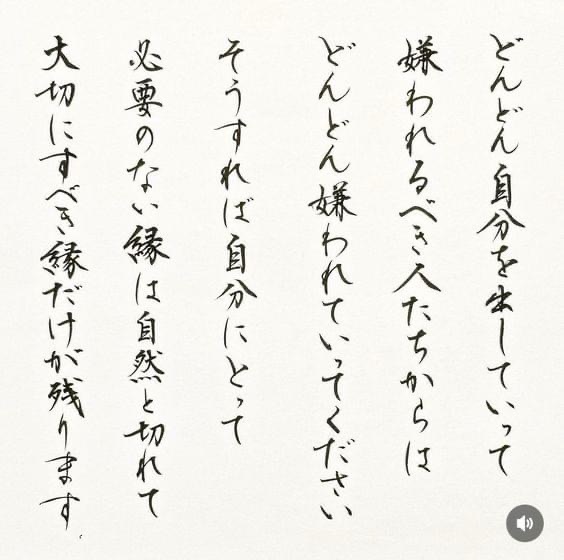 どんどん自分を出していって
嫌われるべき人たちからは
どんどん嫌われていってください
そうすれば自分にとって
必要のない縁は自然と切れて
大切にすべき縁だけが残ります.